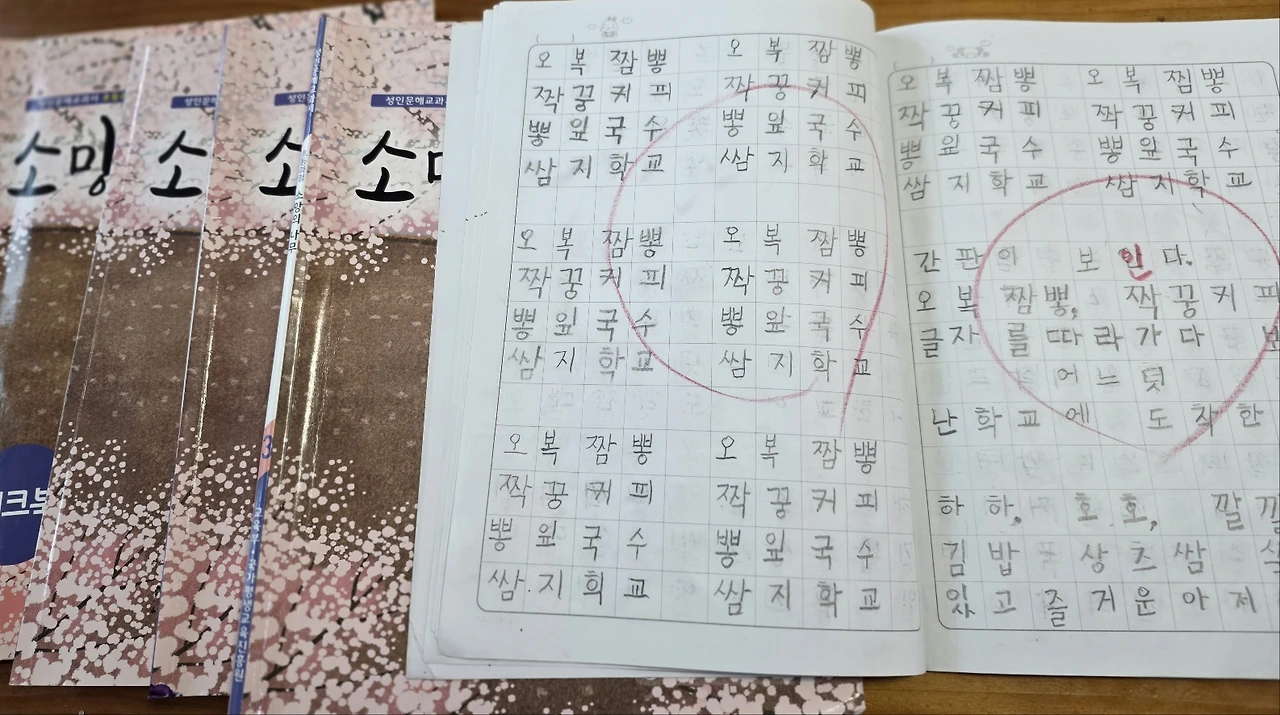 성인문해교과서
소망
소
소
소
소망의 나무
3
교육부·국가평생교육진흥원
크북
오 복 짬뽕 오 복 짬뽕
짝꿍커피 짝꿍커피
뽕잎국수 뽕잎국수
쌈지학교 쌈지학교
오 복 짬뽕 오 복 짬뽕
짝꿍커피 짝꿍커피
뽕잎국수 뽕잎국수
쌈지학교 쌈지학교
오 복 짬뽕 오 복 짬뽕
짝꿍커피 짝꿍커피
뽕잎국수 뽕잎국수
쌈.지희교 쌈지학교
오 복 짬뽕 오 복 짭뽕
짝꿍커피 짝꿍커피
뽕잎국수 뽕잎국수
쌈지학교 쌈지학교
간판의 보인다.
오복 짬뽕, 짝꿍커피
글자를 따라가다
어느덧
난 학교에 도착한
하하, 호호, 깔깔
김밥 상츠쌈
있고 즐거운 아저